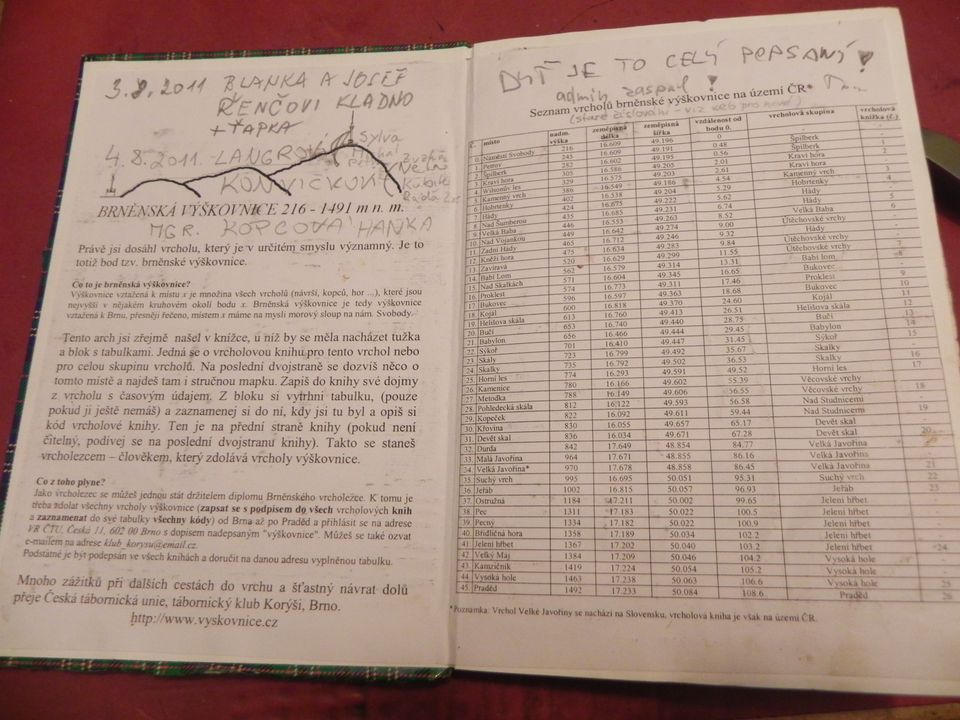 3.8.2011 BLANKA A JOSEF
ŘENČOVI KLADNO
+ ŤAPKA
Sylva
4.8.2011. LANGROVÁ
KONVIČKOVI
BRNĚNSKÁ VÝŠKOVNICE 216 - 1491 m n. m.
MGR. KOPCOVÁ HANKA
Právě jsi dosáhl vrcholu, který je v určitém smyslu významný. Je to
totiž bod tzv. brněnské výškovnice.
Co to je brněnská výškovnice?
Výškovnice vztažená k místu x je množina všech vrcholů (návrší, kopců, hor ...), které jsou
nejvyšší v nějakém kruhovém okolí bodu x. Brněnská výškovnice je tedy výškovnice
vztažená k Brnu, přesněji řečeno, místem x máme na mysli morový sloup na nám. Svobody.
Tento arch jsi zřejmě našel v knížce, u níž by se měla nacházet tužka
a blok s tabulkami. Jedná se o vrcholovou knihu pro tento vrchol nebo
pro celou skupinu vrcholů. Na poslední dvojstraně se dozvíš něco o
tomto místě a najdeš tam i stručnou mapku. Zapiš do knihy své dojmy
z vrcholu s časovým údajem. Z bloku si vytrhni tabulku, (pouze
pokud ji ještě nemáš) a zaznamenej si do ní, kdy jsi tu byl a opiš si
kód vrcholové knihy. Ten je na přední straně knihy (pokud není
čitelný, podívej se na poslední dvojstranu knihy). Takto se staneš
vrcholezcem – člověkem, který zdolává vrcholy výškovnice.
Co z toho plyne?
Jako vrcholezec se můžeš jednou stát držitelem diplomu Brněnského vrcholezce. K tomu je
třeba zdolat všechny vrcholy výškovnice (zapsat se s podpisem do všech vrcholových knih
a zaznamenat do své tabulky všechny kódy) od Brna až po Praděd a přihlásit se na adrese
VR ČTU, Česká 11, 602 00 Brno s dopisem nadepsaným "výškovnice". Můžeš se také ozvat
e-mailem na adrese klub_korysu@email.cz.
Podstatné je být podepsán ve všech knihách a doručit na danou adresu vyplněnou tabulku.
Mnoho zážitků při dalších cestách do vrchu a šťastný návrat dolů
přeje Česká tábornická unie, tábornický klub Korýši, Brno.
http://www.vyskovnice.cz
DYŤ JE TO CELÝ POPSANÝ!
admin zaspal!
Seznam vrcholů brněnské výškovnice na území ČR*
(staré číslování - viz web pro nové)
č. místo nadm. výška zeměpisná délka zeměpisná šířka vzdálenost od bodu 0. vrcholová skupina vrcholová knížka (č.)
0. Náměstí Svobody 216 16.609 49.196 0 - -
1. Petrov 245 16.609 49.191 0.48 Špilberk 1
2. Špilberk 282 16.602 49.195 0.56 Špilberk
3. Kraví hora 305 16.586 49.205 2.01 Kraví hora
4. Wilsonův les 329 16.575 49.203 2.61 Kraví hora
5. Kamenný vrch 386 16.549 49.186 4.54 Kamenný vrch 3
6. Hobrtenky 402 16.538 49.204 5.29 Hobrtenky 4
7. Hády 424 16.675 49.222 5.62 Hády 5
8. Nad Šumberou 435 16.685 49.231 6.74 Hády
9. Velká Baba 446 16.553 49.263 8.52 Velká Baba 6
10. Nad Vojankou 449 16.642 49.274 9.00 Útěchovské vrchy
11. Zadní Hády 465 16.712 49.246 9.32 Hády
12. Kněží hora 475 16.634 49.283 9.84 Útěchovské vrchy
13. Zavíravá 520 16.629 49.299 11.55 Útěchovské vrchy
14. Babí Lom 562 16.579 49.314 13.31 Babí lom 8
15. Nad Skalkách 571 16.604 49.345 16.65 Bukovec
16. Proklest 574 16.773 49.311 17.46 Proklest 9
17. Bukovec 596 16.597 49.363 18.68 Bukovec 10
18. Kojál 600 16.818 49.370 24.60 Kojál 11
19. Helišova skála 613 16.760 49.413 26.51 Helišova skála 12
20. Bučí 653 16.740 49.440 28.75 Bučí 13
21. Babylon 656 16.466 49.444 29.45 Babylon 14
22. Sýkoř 701 16.410 49.447 31.45 Sýkoř 15
23. Skaly 723 16.799 49.492 35.67 Skalky
24. Skalky 735 16.792 49.502 36.53 Skalky 16
25. Horní les 774 16.293 49.591 49.52 Horní les 17
26. Kamenice 780 16.166 49.602 55.39 Věcovské vrchy
27. Metodka 788 16.149 49.606 56.55 Věcovské vrchy 18
28. Pohledecká skála 812 16.122 49.593 56.58 Nad Studnicemi
29. Kopeček 822 16.092 49.611 59.44 Nad Studnicemi 19
30. Křovina 830 16.055 49.657 65.17 Devět skal
31. Devět skal 836 16.034 49.671 67.28 Devět skal 20
32. Durda 842 17.649 48.854 84.77 Velká Javořina
33. Malá Javořina 964 17.671 48.855 86.16 Velká Javořina
34. Velká Javořina* 970 17.678 48.858 86.45 Velká Javořina 21
35. Suchý vrch 995 16.695 50.051 95.31 Suchý vrch 22
36. Jeřáb 1002 16.815 50.057 96.93 Jeřáb 23
37. Ostružná 1184 17.211 50.002 99.65 Jelení hřbet
38. Pec 1311 17.183 50.022 100.5 Jelení hřbet
39. Pecný 1334 17.182 50.022 100.9 Jelení hřbet
40. Břidličná hora 1358 17.189 50.034 102.2 Jelení hřbet
41. Jelení hřbet 1367 17.202 50.040 103.2 Jelení hřbet 24
42. Velký Máj 1384 17.209 50.046 104.2 Vysoká hole
43. Kamzičník 1419 17.224 50.054 105.2 Vysoká hole
44. Vysoká hole 1463 17.238 50.063 106.6 Vysoká hole 25
45. Praděd 1492 17.233 50.084 108.6 Praděd 26
*Poznámka: Vrchol Velké Javořiny se nachází na Slovensku, vrcholová kniha je však na území ČR.